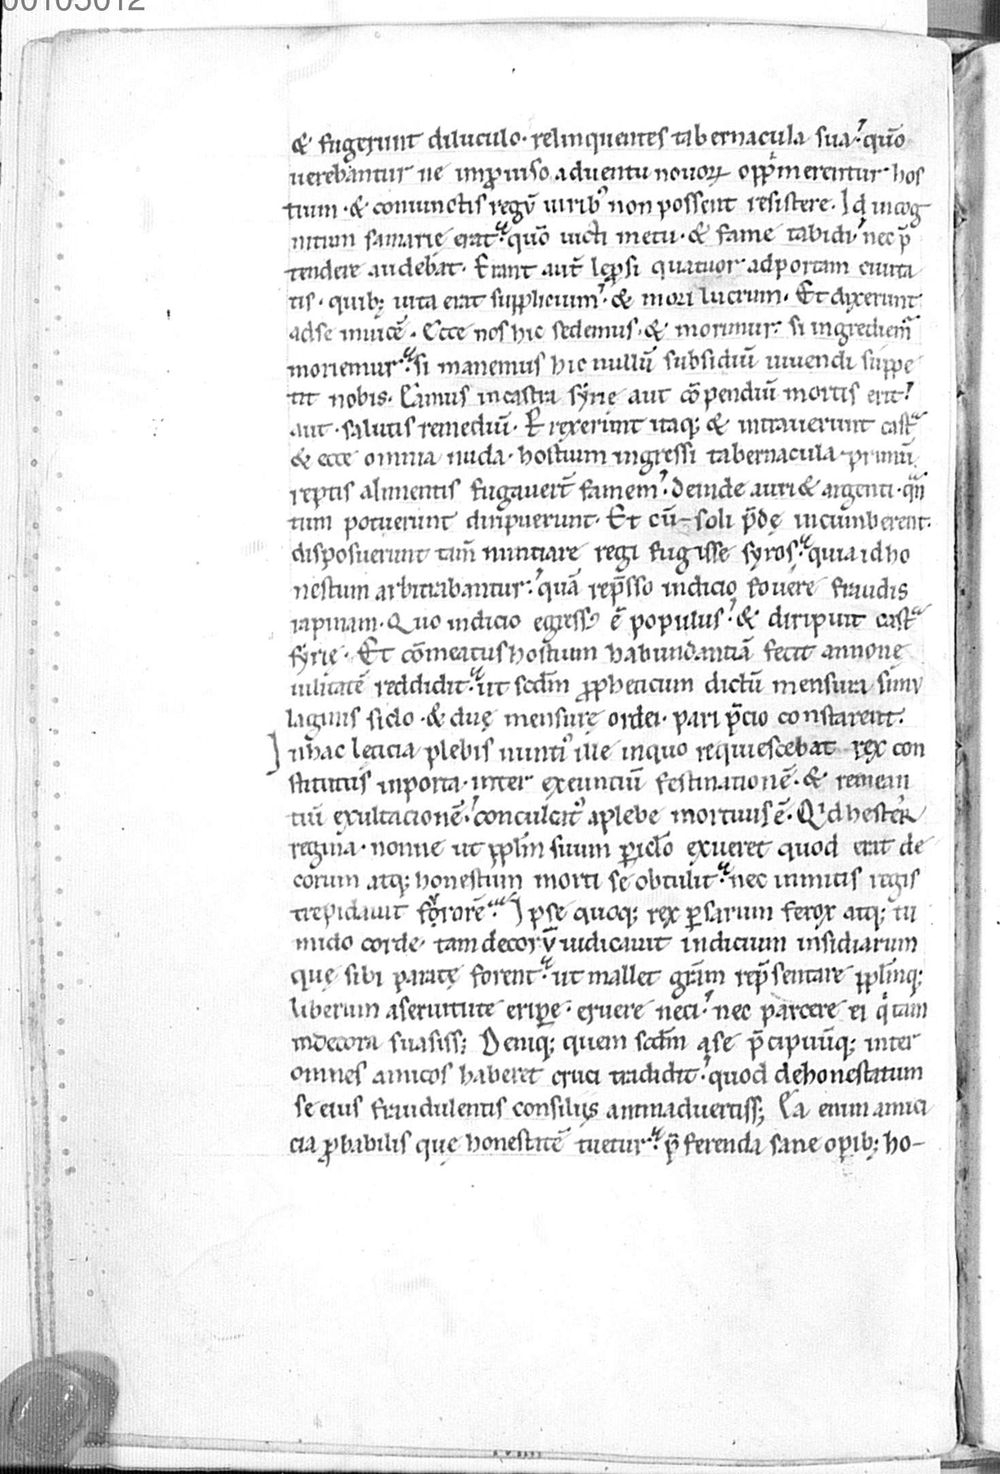 00105012
& fugerunt diluculo· relinquentes tabernacula sua· quō
uerebantur ne imꝓuiso aduentu nouoꝝ oppͥmerentur hos
tium · & coniunctis regū uirib; non possent resistere. Id incog
nitum samarie erat· quō uicti metu · & fame tabidi nec p̄
tendere audebat. Erant aut̄ lep̱si quatuor ad portam ciuita
tis · quib; uita erat supplicium · & mori lucrum. Et dixerunt
adse inuicē. Ecce nos hic sedemus · & morimur· si ingrediem̄
moriemur· si manemus hic nullū subsidiū uiuendi suppe
tit nobis. Eamus in castra syrię aut cōpendiū mortis erit·
aut · salutis remediū. Erexerunt itaq; & intrauerunt castᵃ
& ecce omnia nuda · hostium ingressi tabernacula primū
reptis alimentis fugauert̄ famem· deinde auri & argenti · qᵃn
tum potuerunt diripuerunt. Et cū soli p̄dę incumberent·
disposuerunt tam̄ nuntiare regi fugisse syros· quia id ho
nestum arbitrabantur· quā rep̄sso indicio fouere fraudis
rapinam. Quo indicio egress; ē populus · & diripuit castᵃ
syrię. Et cōmeatus hostium habundantiā fecit annonę
uilitatē reddidit· ut scd̄m ꝓpheticum dictū mensura simi
laginis siclo · & duę mensurę ordei · pari p̄cio constarent.
In hac leticia plebis nunti; ille in quo requiescebat rex con
stitutus in porta · inter exeuntiū festinationē · & remean
tiū exultacionē· conculcat; a plebe mortuus ē. Qͥd hester
regina · nonne ut ppl̄m suum ꝑicl̄o exueret quod erat de
corum atq; honestum morti se obtulit· nec inmitis regis
trepidauit furorē· Ipse quoq; rex ꝑsarum ferox atq; tu
mido corde · tam decorū iudicauit indicium insidiarum
quę sibi paratę forent· ut mallet gr̄am rep̄sentare pplm̄q;
liberum a seruitute eriꝑe · eruere neci · nec parcere ei qͥ tam
indecora suasiss; Deniq; quem scd̄m a se p̄cipuūq; inter
omnes amicos haberet cruci tradidit· quod dehonestatum
se eius fraudulentis consiliis animaduertiss; Ea enim amici
cia ꝓbabilis quę honestatē tuetur· p̄ferenda sane opib; ho-